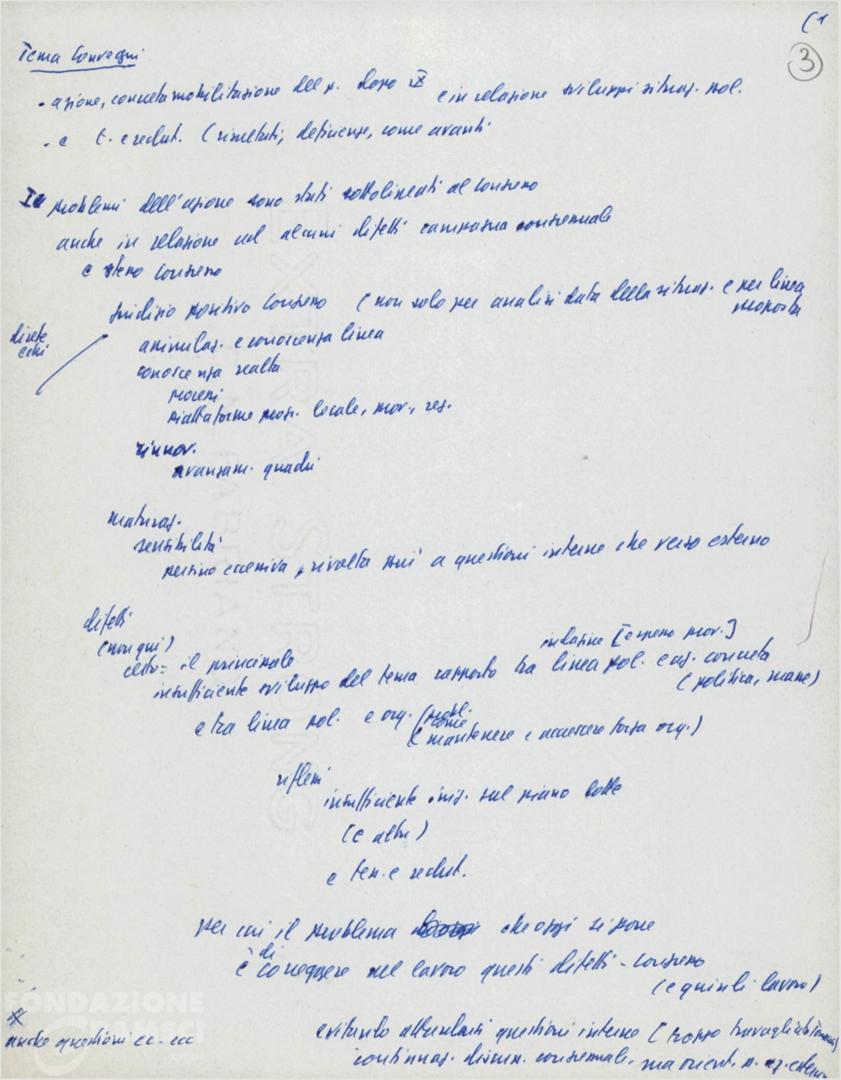 (1
3
Tema Convegni
- azione, concreta mobilitazione del p. dopo IX e in relazione sviluppi situaz. pol.
- e t. e reclut. (risultati, deficienze, come avanti
I problemi dell'azione sono stati sottolineati al congresso
anche in relazione ad alcuni difetti campagna congressuale
e stesso congresso
giudizio positivo congresso (non solo per analisi data della situaz. e per linea proposta
assimilaz. e conoscenza linea
conoscenza realtà
piattaforme prov. locale, prov., reg.
rinnov.
avanzam. quadri
maturaz.
sensibilità
persino eccessiva, rivolta più a questioni interne che verso esterno
difetti
(non qui)
certo = il principale
indagine
insufficiente sviluppo del tema rapporto tra linea pol. e az. concreta
(politica, masse)
e tra linea pol. e org. (mobil.
come
(mantenere e accrescere forza org.)
riflessi
insufficiente iniz. sul piano lotte
(e altri)
e tess. e reclut.
per cui il problema che oggi si pone
è di correggere nel lavoro questi difetti - congresso
(e quindi lavoro)
FONDAZIONE GRAMSCI
anche questioni cc - ccc
evitando questioni interne (troppo
continuaz. discuss. congressuale, ma orient. p. az. estern.
EXTRA STRONG
FABRIANO